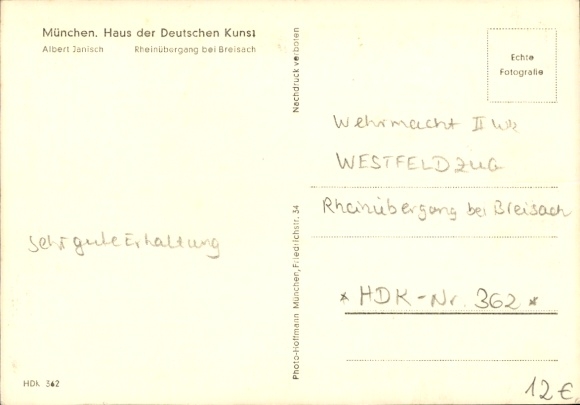 München. Haus der Deutschen Kunst
Albert Janisch Rheinübergang bei Breisach
sehr gute Erhaltung
HDK 362
Nachdruck verboten
Photo-Hoffmann München, Friedrichstr. 34
Echte
Fotografie
Wehrmacht II Wk
WESTFELDZUG
Rheinübergang bei Breisach
* HDK-Nr. 362 *
12 €